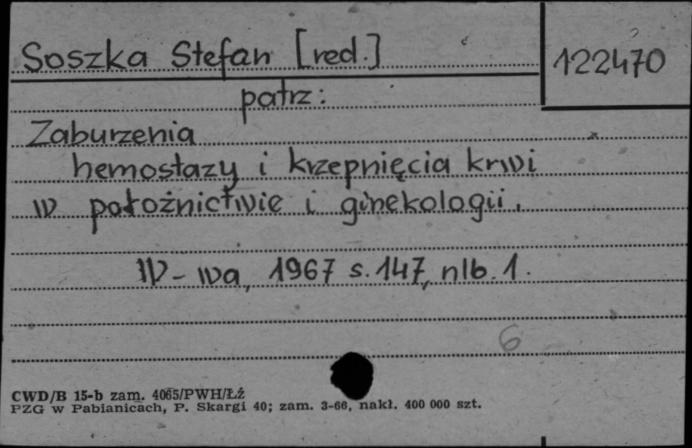 Soszka Stefan [red.]
122470
patrz:
Zaburzenia
hemostazy i krzepnięcia krwi
w położnictwie i ginekologii.
W-wa, 1967 s. 147, nlb. 1.
6
CWD/B 15-b zam. 4065/PWH/Łź
PZG w Pabianicach, P. Skargi 40; zam. 3-66, nakł. 400 000 szt.